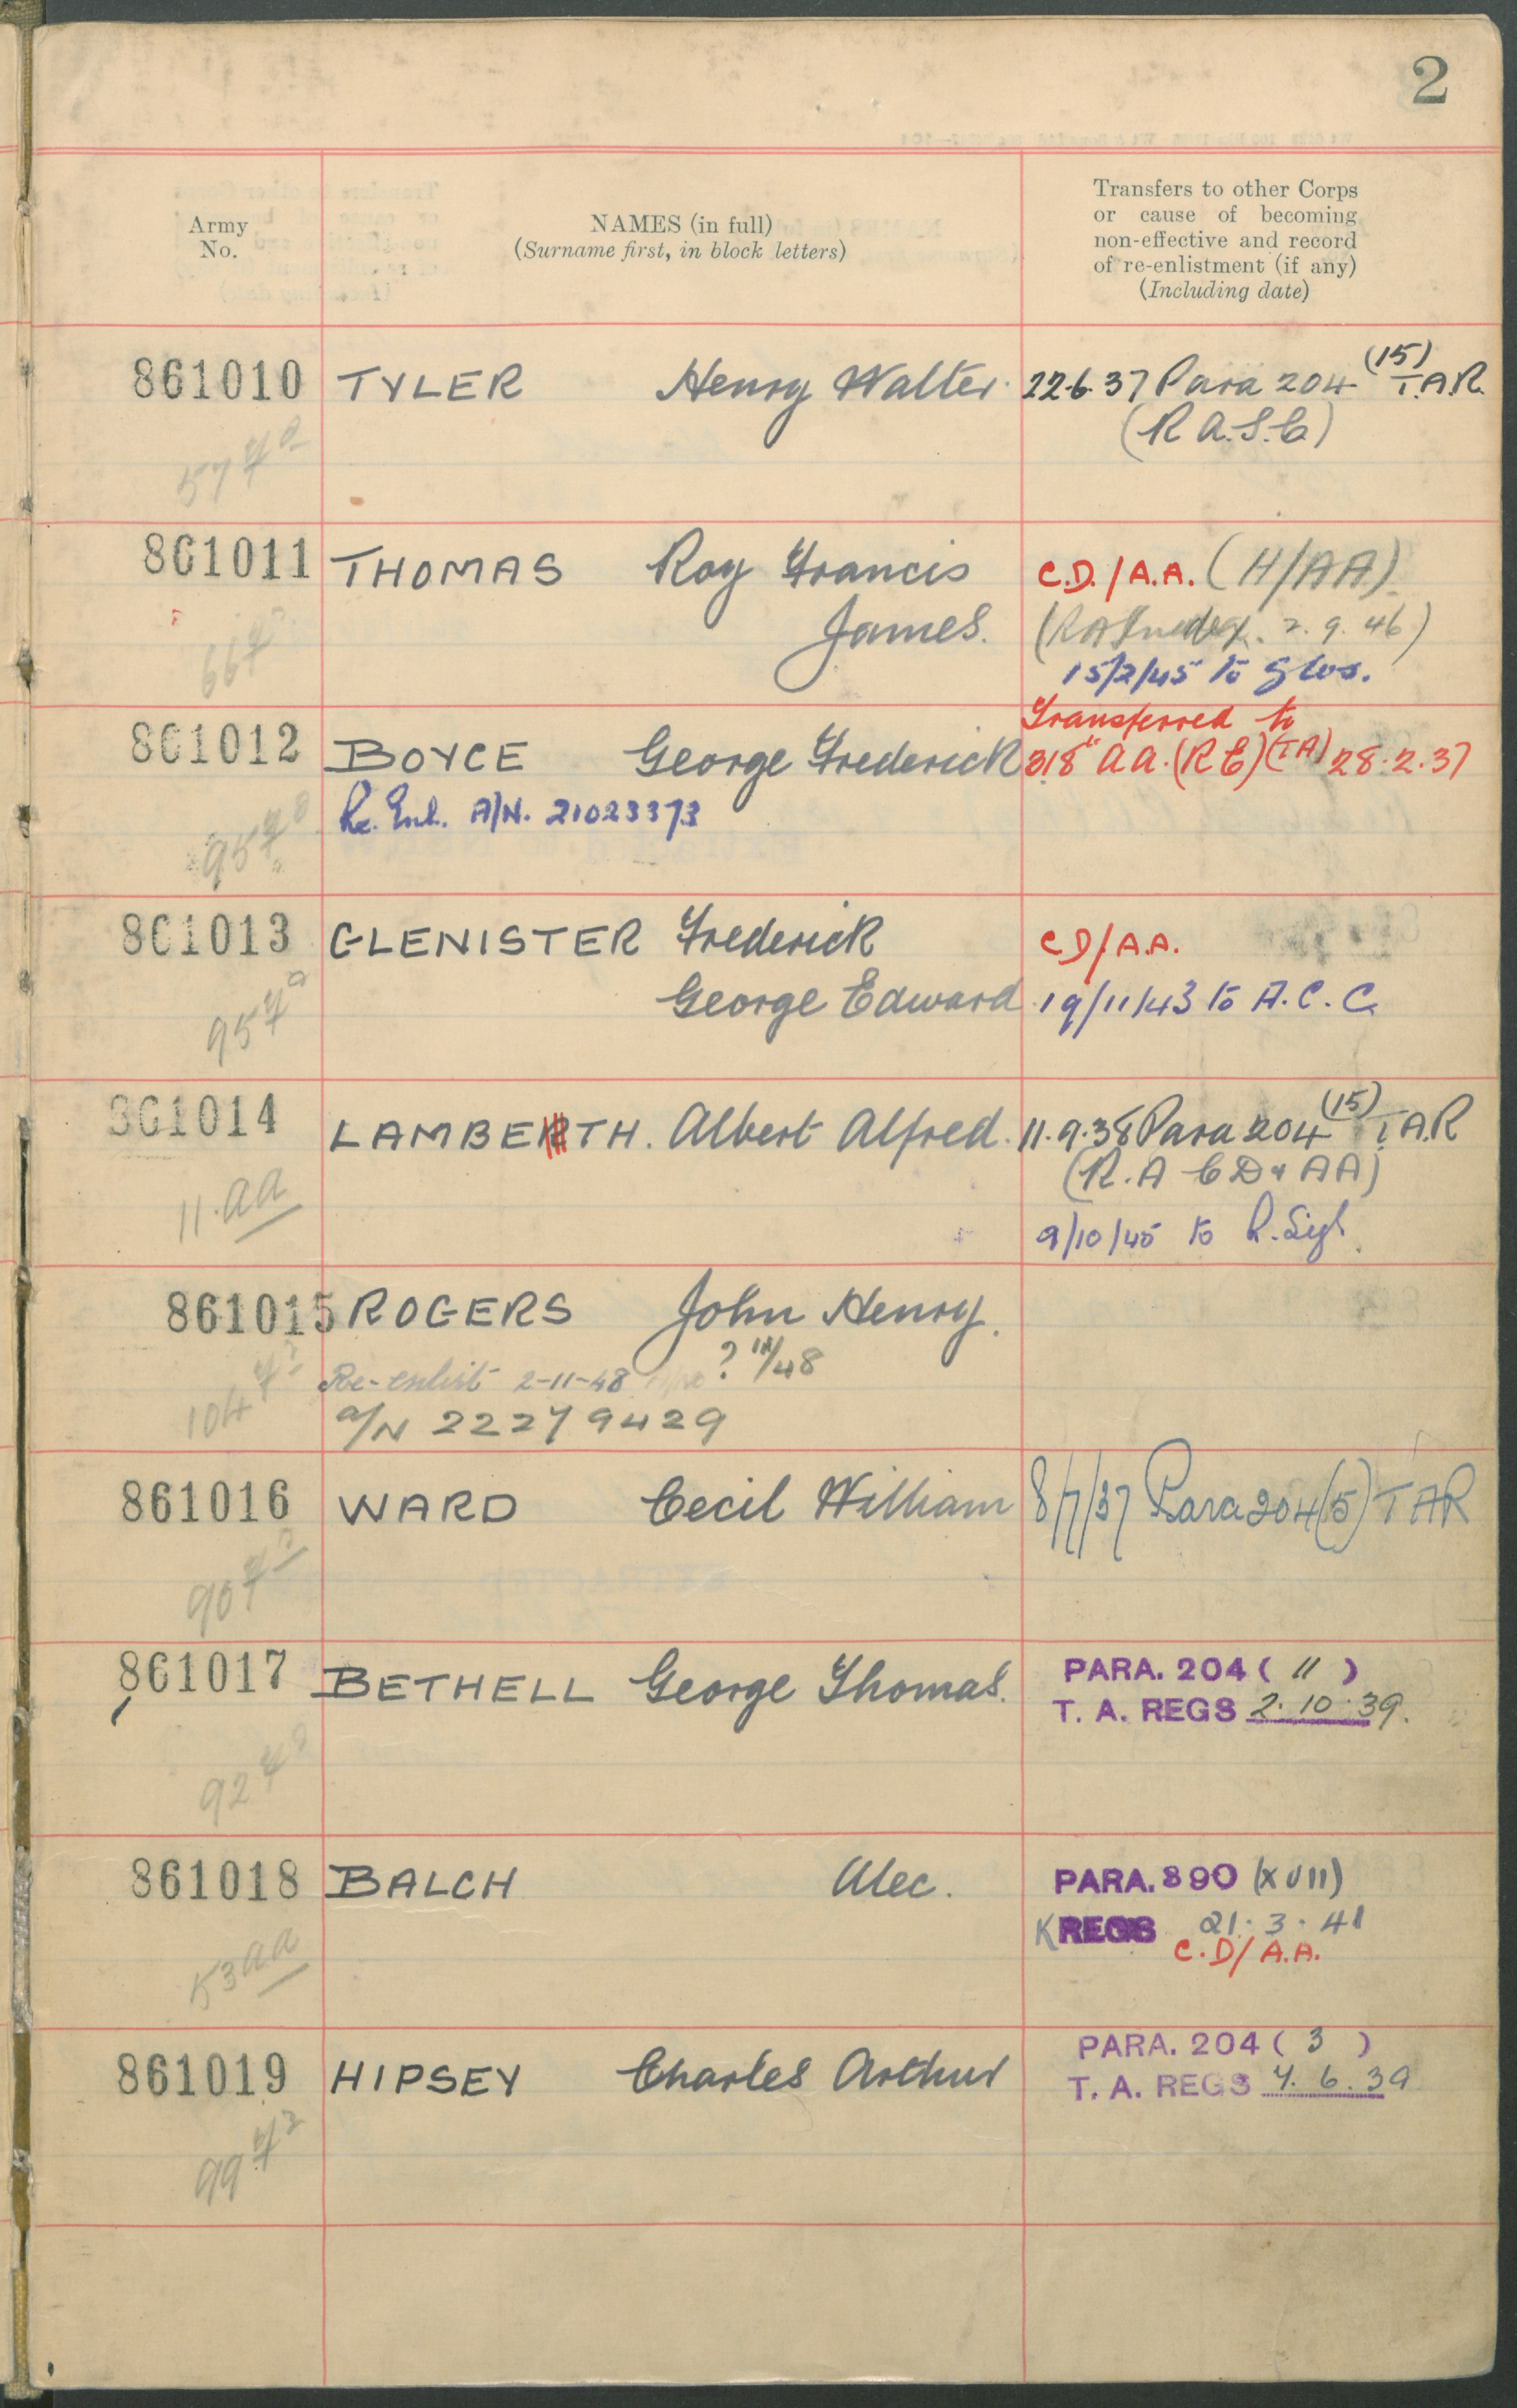 2
Army
No.
NAMES (in full)
(Surname first, in block letters)
Transfers to other Corps
or cause of becoming
non-effective and record
of re-enlistment (if any)
(Including date)
861010 TYLER Henry Walter. 22.6.37 Para 204 (15) T.A.R.
(R A.S.C)
57
861011 THOMAS Roy Francis C.D./A.A. (H/AA).
James. 2.9.46)
66
15/2/45 to Glos.
861012 BOYCE George Frederick Transferred to
318 AA.(RE)(TA) 28.2.37
Re. Enl. A/N. 21023373
95
861013 GLENISTER Frederick CD/A.A.
George Edward 19/11/43 to A.C.C.
95
861014 LAMBERTH. Albert Alfred. 11.9.38 Para 204 (15) T.A.R
(R.A CD & AA)
11.AA
9/10/45 to R.Sigs
861015 ROGERS John Henry.
Re-enlist 2-11-48 ? 11/48
104
A/N 22279429
861016 WARD Cecil William 8/7/37 Para 204(5) TAR
90
861017 BETHELL George Thomas. PARA. 204 ( 11 )
T. A. REGS 2.10.39.
92
861018 BALCH Alec. PARA. 390 (XVII)
K REGS 21.3.41
C.D/A.A.
53 AA
861019 HIPSEY Charles Arthur PARA. 204 ( 3 )
T. A. REGS 7.6.39
99